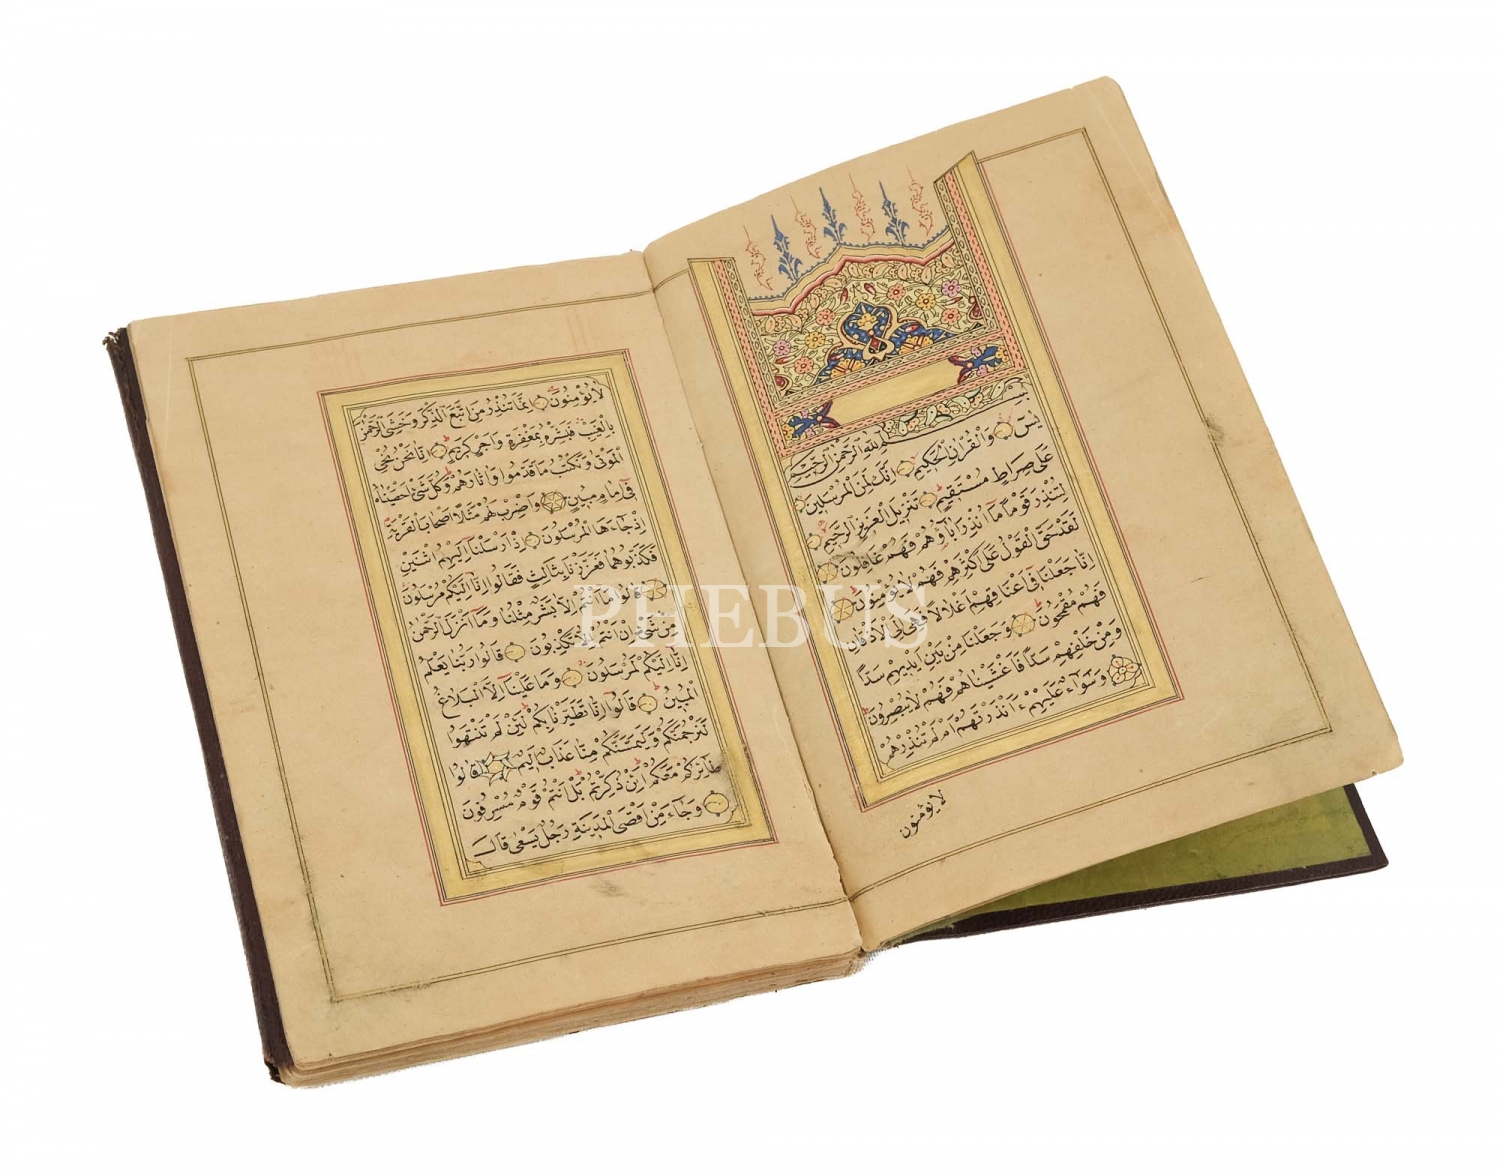 بسم الله الرحمن الرحيم
يس والقرآن الحكيم انك لمن المرسلين
على صراط مستقيم تنزيل العزيز الرحيم
لتنذر قوما ما انذر اباؤهم فهم غافلون
لقد حق القول على اكثرهم فهم لا يؤمنون
انا جعلنا في اعناقهم اغلالا فهي الى الاذقان
فهم مقمحون وجعلنا من بين ايديهم سدا
ومن خلفهم سدا فاغشيناهم فهم لا يبصرون
وسواء عليهم ءانذرتهم ام لم تنذرهم
لا يؤمنون
لا يؤمنون انما تنذر من اتبع الذكر وخشي الرحمن
بالغيب فبشره بمغفرة واجر كريم انا نحن نحيي
الموتى ونكتب ما قدموا واثارهم وكل شيء احصيناه
في امام مبين واضرب لهم مثلا اصحاب القرية
اذ جاءها المرسلون اذ ارسلنا اليهم اثنين
فكذبوهما فعززنا بثالث فقالوا انا اليكم مرسلون
قالوا ما انتم الا بشر مثلنا وما انزل الرحمن
من شيء ان انتم الا تكذبون قالوا ربنا يعلم
انا اليكم لمرسلون وما علينا الا البلاغ
المبين قالوا انا تطيرنا بكم لئن لم تنتهوا
لنرجمنكم وليمسنكم منا عذاب اليم قالوا
طائركم معكم ائن ذكرتم بل انتم قوم مسرفون
وجاء من اقصى المدينة رجل يسعى قال
PHEBUS